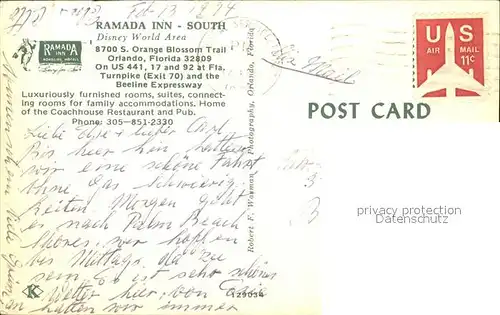 Feb 13 1974
RAMADA INN - SOUTH
Disney World Area
8700 S. Orange Blossom Trail
Orlando, Florida 32809
On US 441, 17 and 92 at Fla.
Turnpike (Exit 70) and the
Beeline Expressway
RAMADA
INN
Luxuriously furnished rooms, suites, connect-
ing rooms for family accommodations. Home
of the Coachhouse Restaurant and Pub.
Phone: 305-851-2330
Liebe Else + lieber Carl
Bis hier her hatten
wir eine schöne Fahrt
Ohne das Schwierig-
keiten Morgen geht
es nach Palm Beach
Shores, wir hoffen
bis Mittags, da zu
sein. Es ist sehr schönes
Wetter hier, von
an hatten wir immer
K
129034
Robert F. Waxman Photography, Orlando, Florida
Air Mail
U S
AIR MAIL
11¢
POST CARD
privacy protection
oldthing.de